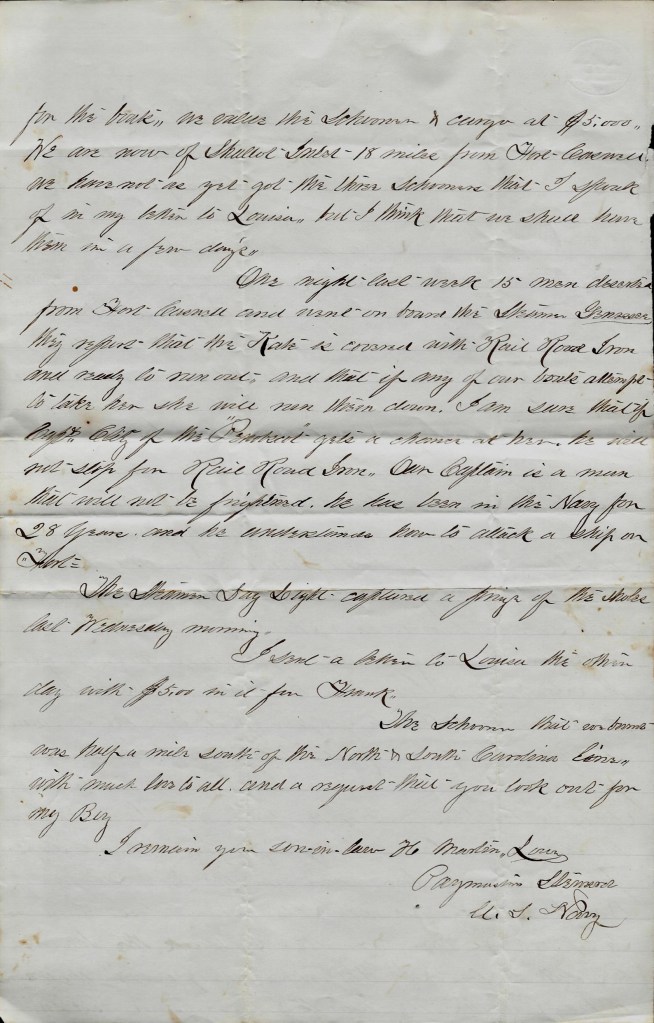 for the boats,, we value the Schooner & cargo at $5.000,,
We are now of Shallot Inlet 18 miles from Fort Caswell.
we have not as yet got the three schooners that I spoak
of in my letter to Louisa,, but I think that we shall have
them in a few days,,
One night last week 15 men deserted
from Fort Caswell and went on board the Steamer Genessee
they report that the Kate is covered with Rail Road Iron
and ready to run out, and that if any of our boats attempt
to take her she will run them down. I am sure that if
of the "Penobscot" gets a chance at her. he will
not stop for Rail Road Iron,, Our Captain is a man
that will not be frightened. he has been in the Navy for
28 Years. and he understands how to attack a ship or
Fort=
The Steamer Day Light captured a prize of the Sholes
last Wednesday morning.
I sent a letter to Louisa the other
day with $5.00 in it for Frank
The Schooner that we burnt
was half a mile south of the North & South Carolina line,,
with much love to all. and a request that you look out for
my Boy
I remain your son-in-law H Martin,,
Paymasters Steward
U. S. Navy